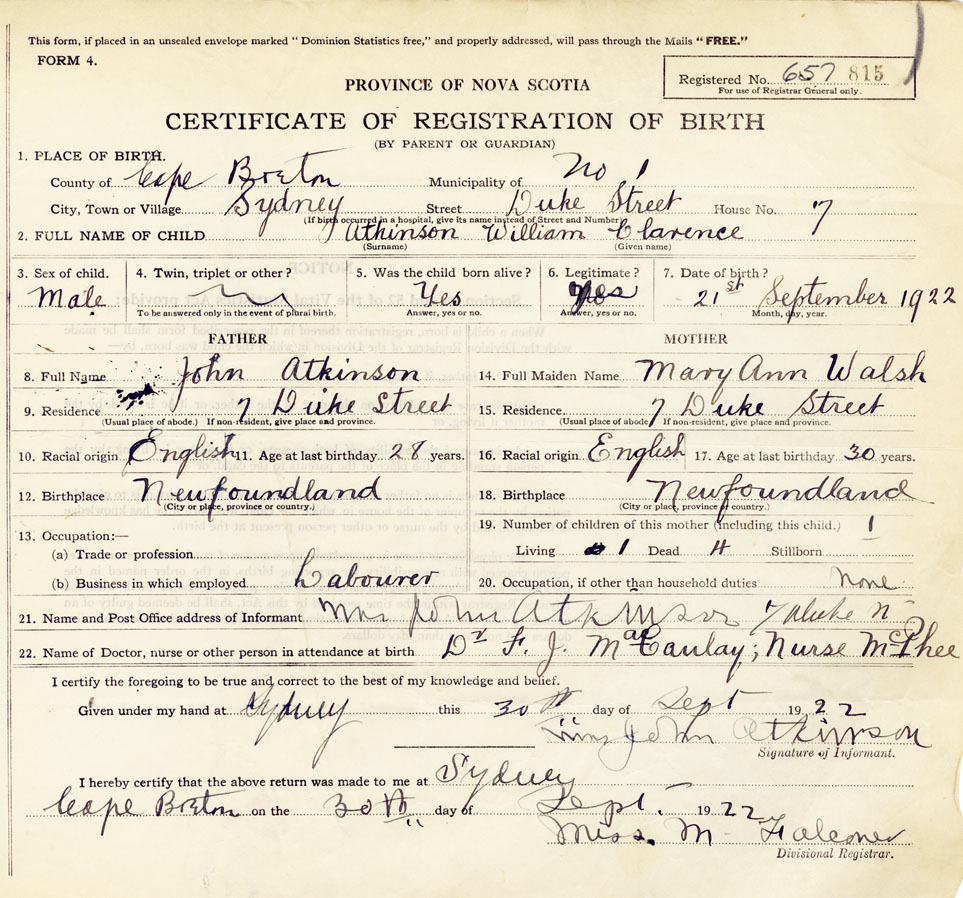 This form, if placed in an unsealed envelope marked "Dominion Statistics free," and properly addressed, will pass through the Mails "FREE."
FORM 4.
Registered No. 657 815
For use of Registrar General only.
PROVINCE OF NOVA SCOTIA
CERTIFICATE OF REGISTRATION OF BIRTH
(BY PARENT OR GUARDIAN)
1. PLACE OF BIRTH.
County of Cape Breton Municipality of No 1
City, Town or Village Sydney Street Duke Street House No. 7
(If birth occurred in a hospital, give its name instead of Street and Number)
2. FULL NAME OF CHILD Atkinson William Clarence
(Surname) (Given name)
3. Sex of child. 4. Twin, triplet or other? 5. Was the child born alive? 6. Legitimate? 7. Date of birth?
Male Yes Yes 21st September 1922
To be answered only in the event of plural birth. Answer, yes or no. Answer, yes or no. Month, day, year.
FATHER MOTHER
8. Full Name John Atkinson 14. Full Maiden Name Mary Ann Walsh
9. Residence 7 Duke Street 15. Residence 7 Duke Street
(Usual place of abode.) If non-resident, give place and province. (Usual place of abode) If non-resident, give place and province.
10. Racial origin English 11. Age at last birthday 28 years. 16. Racial origin English 17. Age at last birthday 30 years.
12. Birthplace Newfoundland 18. Birthplace Newfoundland
(City or place, province or country.) (City or place, province or country.)
19. Number of children of this mother (including this child.) 1
13. Occupation:—
(a) Trade or profession Living 1 Dead Stillborn
(b) Business in which employed Labourer 20. Occupation, if other than household duties None
21. Name and Post Office address of Informant Mrs John Atkinson 7 Duke
22. Name of Doctor, nurse or other person in attendance at birth Dr F. J. MacCaulay; Nurse McPhee
I certify the foregoing to be true and correct to the best of my knowledge and belief.
Given under my hand at Sydney this 30th day of Sept 1922
John Atkinson
Signature of Informant.
I hereby certify that the above return was made to me at Sydney
Cape Breton on the 30th day of Sept. 1922
Miss. M Falconer
Divisional Registrar.